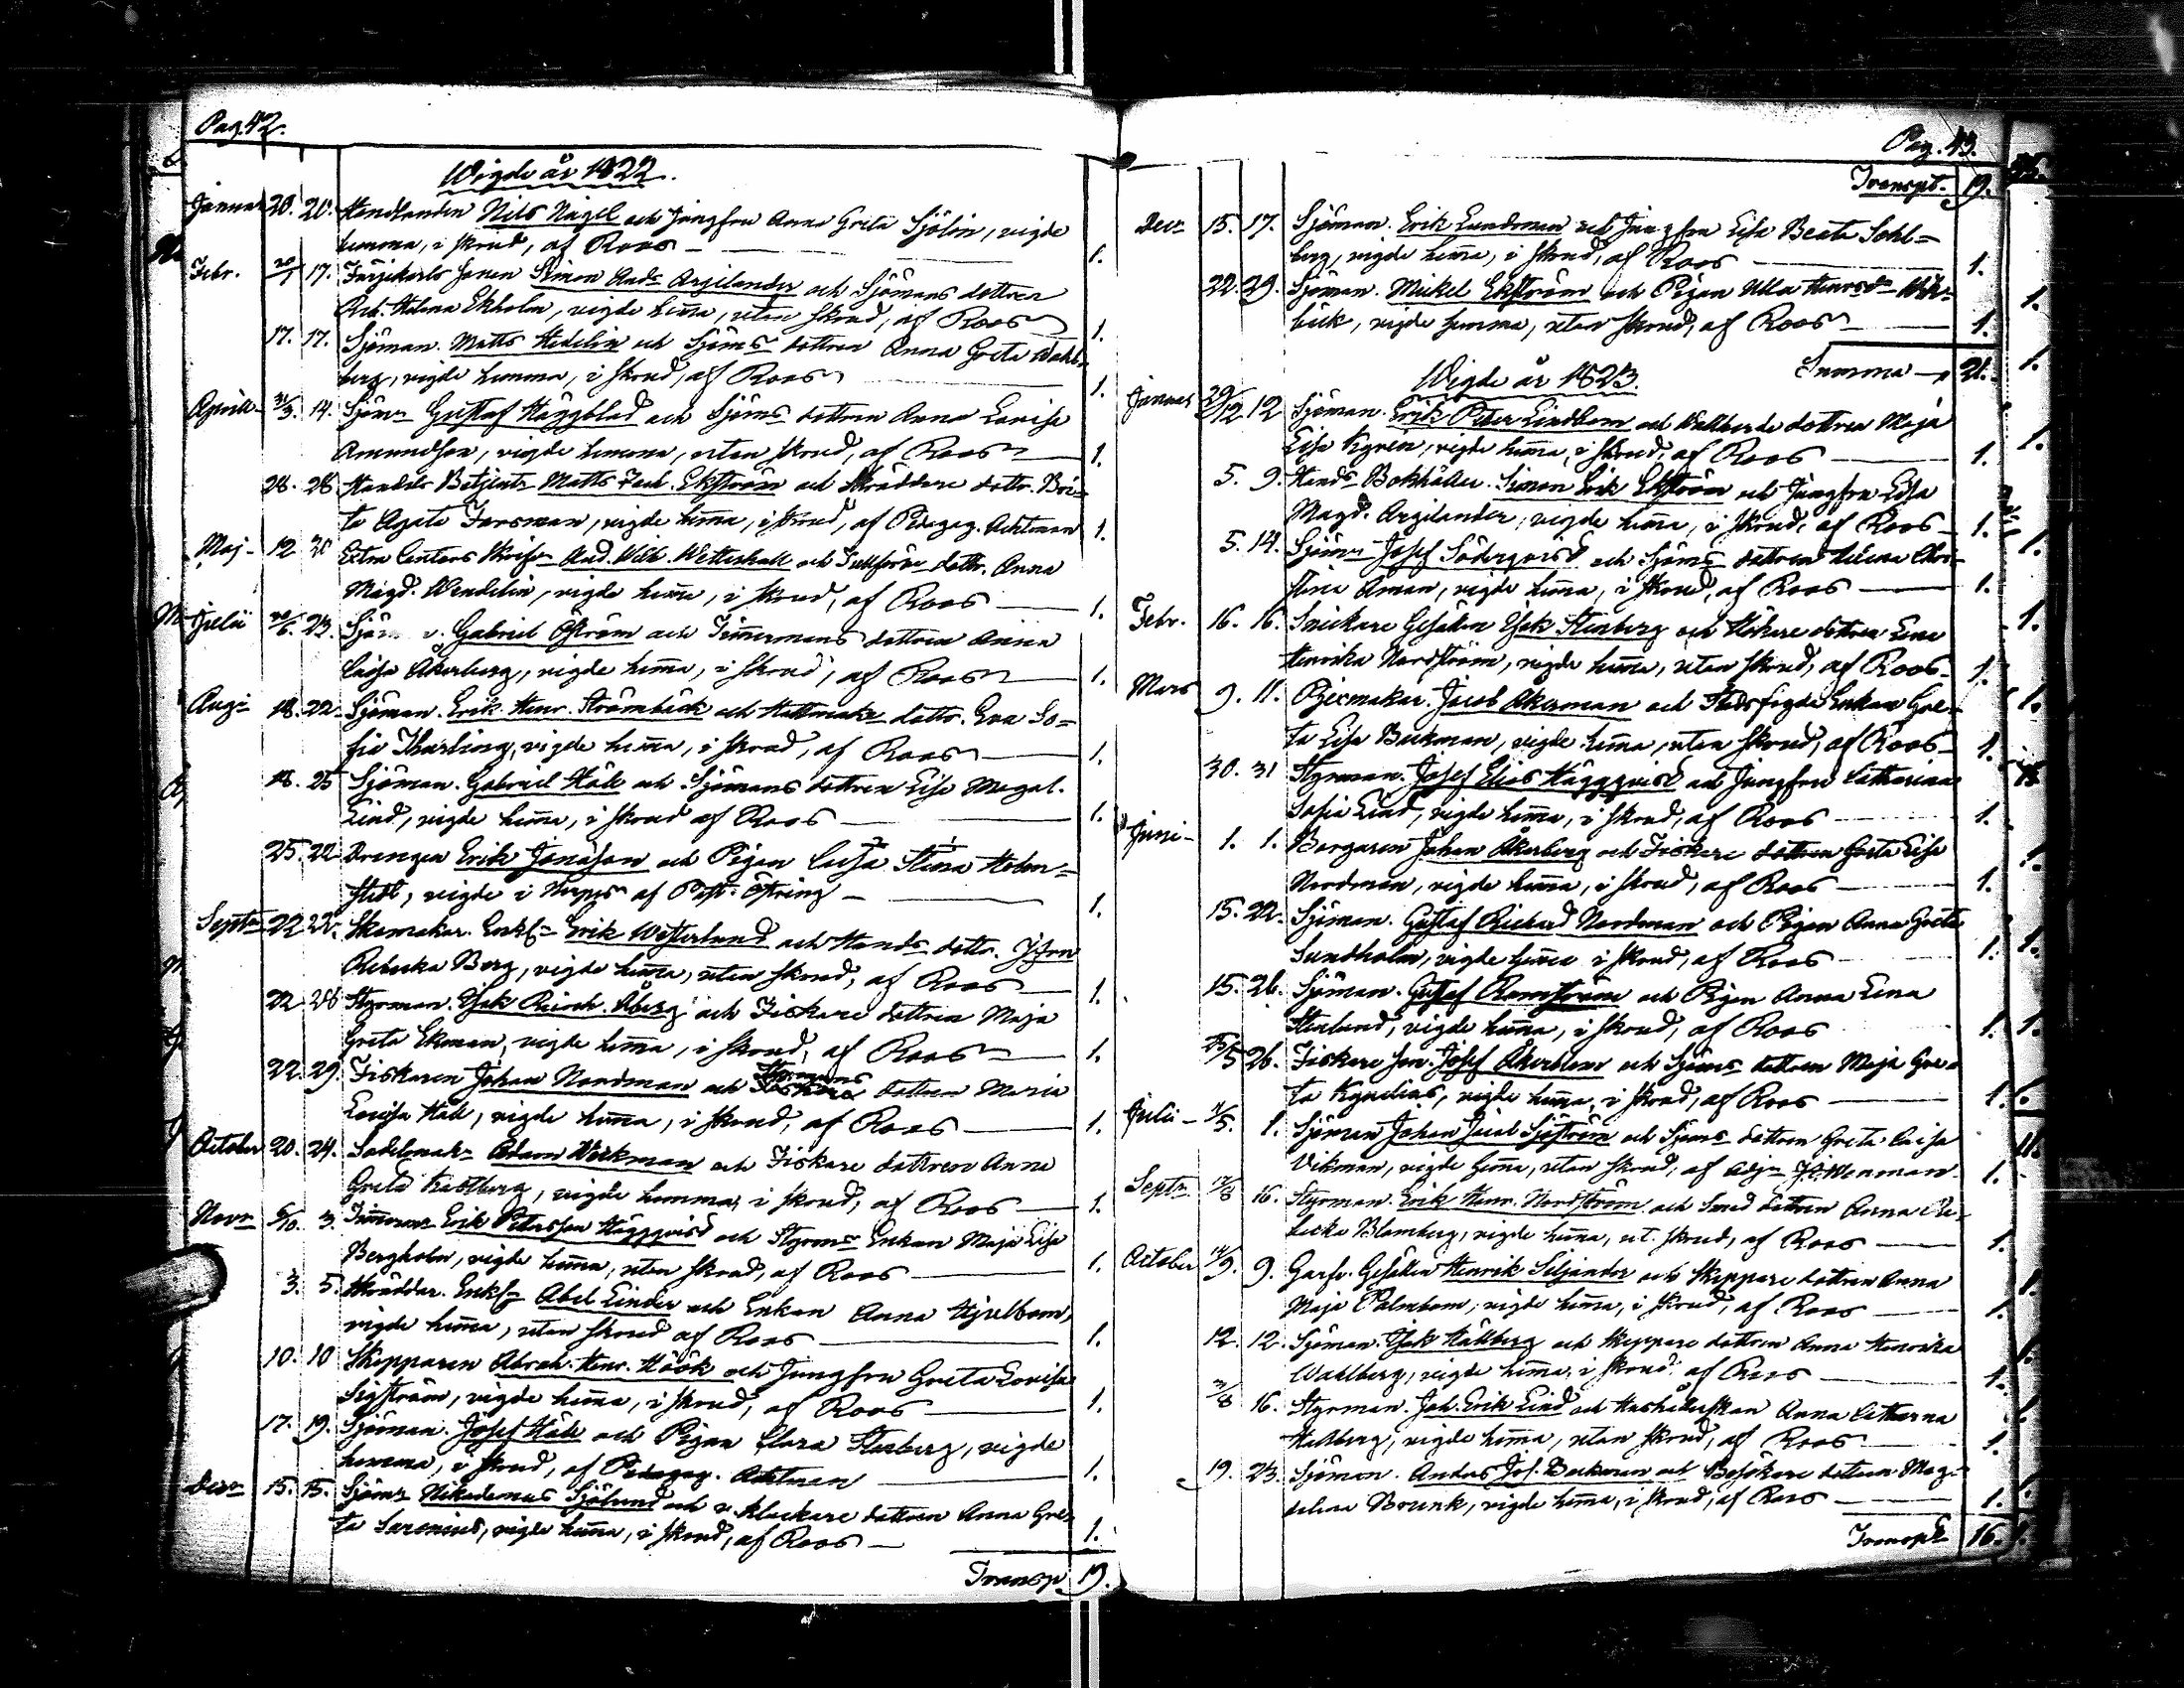 Pag. 42.
Wigde år 1822.
Januar 20. 20. Handlanden Nils Nagel och Jungfru Anna Greta Sjölin, vigde
hemma, i skrud, af Roos 1.
Febr. 20/1 17. Färjekarls sonen Simon And. Argilander och Sjömans dottren
Helena Ekholm, vigde hema, utan skrud, af Roos 1.
17. 17. Sjöman. Matts Hedelin och Sjöms dottren Anna Greta Wahl-
berg, vigde hemma, i skrud, af Roos 1.
April 31/3. 14. Sjöm Gustaf Häggblad och Sjöms dottren Anna Lovisa
Amundson, vigde hemma, utan skrud, af Roos 1.
28. 28 Handels Betjent Matts Zach. Ekström och Skräddare dottr. Bri-
ta Agata Forsman, vigde hema, i skrud, af Pedagog. Ahlman 1.
Maj 12 20 Extra Contors Skrifv And. Wilh. Wetterhall och dottr. Anna
Magd. Wendelin, vigde hema, i skrud, af Roos 1.
Julii 23. Gabriel Öström och Timmermans dottren Anna
Caisa Åkerberg, vigde hema, i skrud, af Roos 1.
Aug 18. 22. Sjöman. Erik Henr. Strömbäck och Hattmak dottr. Eva So-
fia Tharling, vigde hema, i skrud, af Roos 1.
18. 25 Sjöman. Gabriel Hök och Sjömans dottren Lisa Magd.
Lind, vigde hema, i skrud af Roos 1.
25. 22 Drengen Erik Jonasson och Pigan Caisa Stina Holm-
stedt, vigde i Nerpes af Past. Estring 1.
Septr 22 22. Skomakar. Enkl Erik Westerlund och Hands dottr. Jfrn
Rebecka Berg, vigde hema, utan skrud, af Roos 1.
22 26 Styrman. Isak Rein. Åberg och Fiskare dottren Maja
Greta Ekman, vigde hema, i skrud, af Roos 1.
22. 29. Fiskaren Johan Nordman och Styrmans dottren Maria
Lovisa Hök, vigde hema, i skrud, af Roos 1.
October 20. 24. Sadelmak Adam Wikman och Fiskare dottren Anna
Greta Kastberg, vigde hemma, i skrud, af Roos 1.
Novr 6/10. 3. Timerm Erik Petersson Häggqvist och Styrm Enkan Maja Lisa
Bergholm, vigde hema, utan skrud, af Roos 1.
3. 5. Skräddar. Enkl Abel Linder och Enkan Anna Hjelbom,
vigde hema, utan skrud af Roos 1.
10. 10 Skepparen Abrah. Henr. Höök och Jungfru Greta Lovisa
Sigström, vigde hema, i skrud, af Roos 1.
17. 19. Sjöman. Josef Hök och Pigan Clara Starberg, vigde
hemma, i skrud, af Pedagog. Ahlman 1.
Decr 15. 15. Sjöm Nikodemus Sjölund och v. klockare dottren Anna Gre-
ta Serenius, vigde hema, i skrud, af Roos 1.
Transp 19.
Pag. 43.
Transpt. 19.
Decr 15. 17. Sjöman. Erik Lundman och Jungfru Lisa Beata Sahl-
berg, vigde hema, i skrud, af Roos 1.
22. 29. Sjöman. Mickel Ekström och Pigan Ulla
bäck, vigde hemma, utan skrud, af Roos 1.
Summa 21.
Wigde år 1823.
Januar 29/12 12 Sjöman. Erik Peter Lindbom och dottren Maja
Lisa Kyrein, vigde hema, i skrud, af Roos 1.
5. 9. Hands Bokhållar. Simon Erik Ekström och Jungfru Lisa
Magd. Argilander, vigde hema, i skrud, af Roos 1.
5. 14. Sjöm Josef Söderqvist och Sjöms dottren Helena Chri-
stina Åman, vigde hema, i skrud, af Roos 1.
Febr. 16. 16. Snickare Gesällen Isak Stenberg och dottren Lena
Henrika Nordström, vigde hema, utan skrud, af Roos 1.
Mars 9. 11. Jacob Åkerman och Stadsfogde Enkan Gre-
ta Lisa Backman, vigde hema, utan skrud, af Roos 1.
30. 31 Styrman. Josef Elias Häggqvist och Jungfru Catharina
Sofia Lind, vigde hema, i skrud, af Roos 1.
Juni 1. 1. Borgaren Johan Åkerberg och Fiskare dottren Greta Lisa
Nordman, vigde hema, i skrud, af Roos 1.
15. 22. Sjöman. Gustaf Rickard Nordman och Pigan Anna Greta
Sundholm, vigde hema i skrud, af Roos 1.
15. 26. Sjöman. Gustaf Ramström och Pigan Anna Lena
Stenlund, vigde hema, i skrud, af Roos 1.
25/5 26. Fiskare son. Josef Åkerblom och Sjöms dottren Maja Gre-
ta Kyndlius, vigde hema, i skrud, af Roos 1.
Julii 1. Sjöman Johan Jacob Sjöström och Sjöms dottren Greta Caisa
Vikman, vigde hema, utan skrud, af Adj. J. Wenman 1.
Septr 16. Styrman. Erik Henr. Nordström och Smed dottren Anna Re-
becka Blomberg, vigde hema, ut. skrud, af Roos 1.
October 14/9. 9. Garfv. Gesällen Henrik Siljander och Skeppare dottren Anna
Maja Palmbom, vigde hema, i skrud, af Roos 1.
12. 12. Sjöman. Isak Hällberg och Skeppare dottren Anna Henrika
Wahlberg, vigde hema, i skrud af Roos 1.
3/8 16. Styrman. Joh. Erik Lind och Hushållerskan Anna Catharna
Hallberg, vigde hema, utan skrud, af Roos 1.
19. 23. Sjöman. Anders Jos. Backman och Besökare dottren Mag-
dalena Brunk, vigde hema, i skrud, af Roos 1.
Transpt 16.